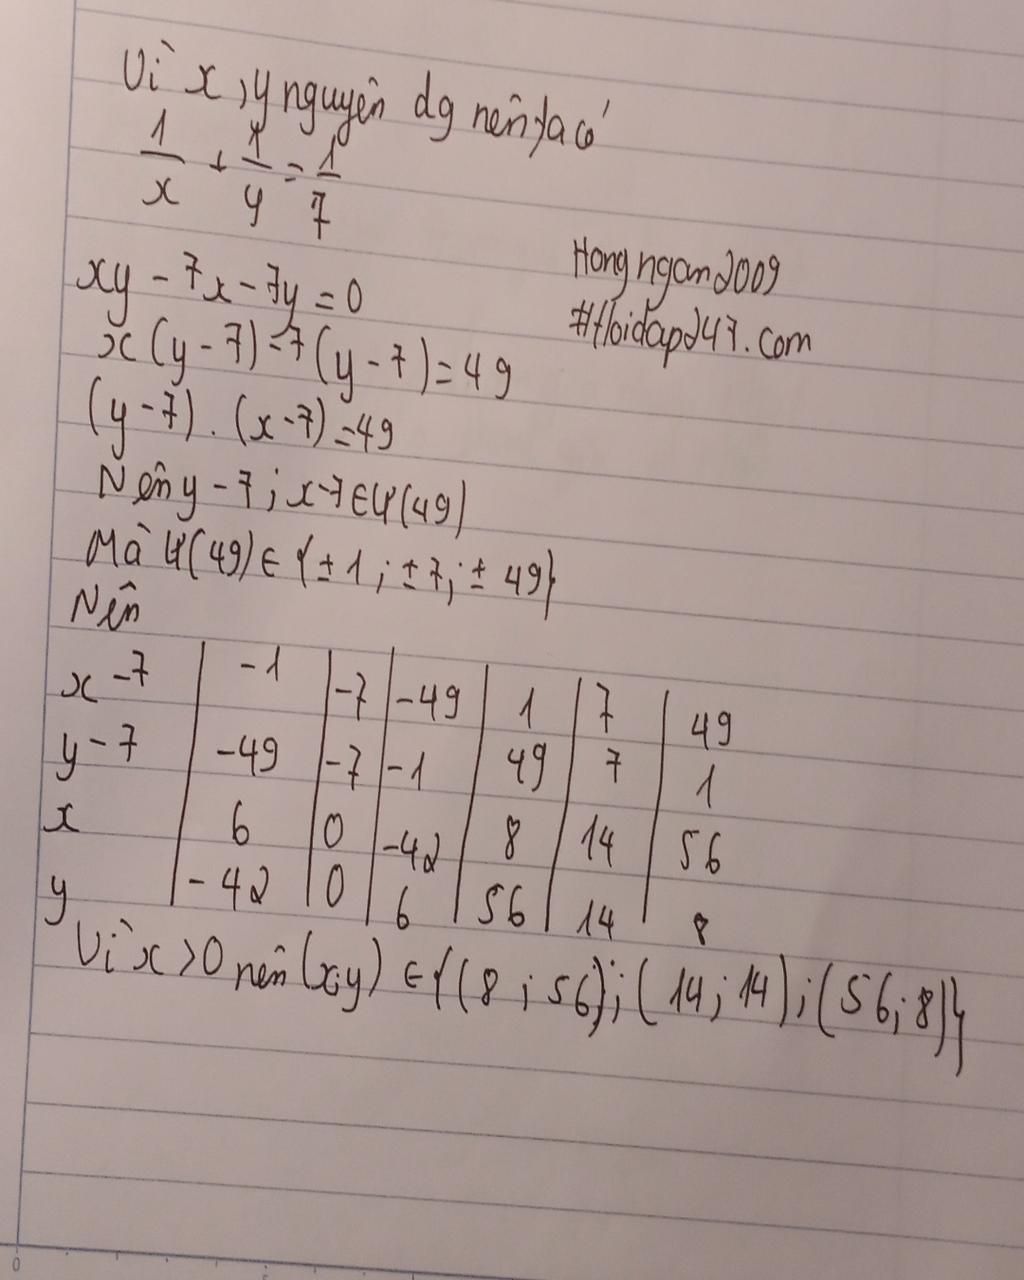 Vì x, y nguyên dg nên ta có
1/x + 1/y = 1/7
xy - 7x - 7y = 0
Hongngan2009
#Hoidap247.com
x(y-7) - 7(y-7) = 49
(y-7) . (x-7) = 49
Nên y-7; x-7 ∈ Ư(49)
Mà Ư(49) ∈ {±1; ±7; ±49}
Nên
x-7 | -1 | -7 | -49 | 1 | 7 | 49
y-7 | -49 | -7 | -1 | 49 | 7 | 1
x | 6 | 0 | -42 | 8 | 14 | 56
y | -42 | 0 | 6 | 56 | 14 | 8
Vì x>0 nên (x;y) ∈ {(8; 56); (14; 14); (56; 8)}
0